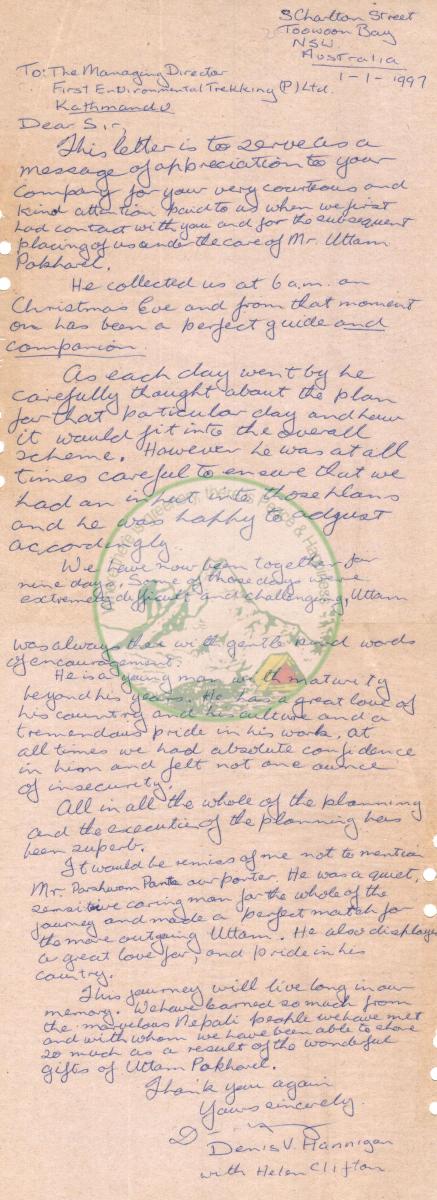 5 Charlton Street
Toowoon Bay
NSW
Australia
1-1-1997
To: The Managing Director
First Environmental Trekking (P) Ltd.
Kathmandu
Dear Sir,
This letter is to serve as a
message of appreciation to your
company for your very courteous and
kind attention paid to us when we first
had contact with you and for the subsequent
placing of us under the care of Mr. Uttam
Pokharel.
He collected us at 6 a.m. on
Christmas Eve and from that moment
on has been a perfect guide and
companion
As each day went by he
carefully thought about the plan
for that particular day and how
it would fit into the overall
scheme. However he was at all
times careful to ensure that we
had an input into those plans
and he was happy to adjust
accordingly.
We have now been together for
nine days. Some of those days were
extremely difficult and challenging, Uttam
was always there with gentle kind words
of encouragement.
He is a young man with maturity
beyond his years. He has a great love of
his country and his culture and a
tremendous pride in his work. At
all times we had absolute confidence
in him and felt not one ounce
of insecurity.
All in all the whole of the planning
and the execution of the planning has
been superb.
It would be remiss of me not to mention
Mr. Parshwom Pante our porter. He was a quiet,
sensitive caring man for the whole of the
journey and made a perfect match for
the more outgoing Uttam. He also displayed
a great love for, and pride in his
country.
This journey will live long in our
memory. We have learned so much from
the marvelous Nepali people we have met
and with whom we have been able to share
so much as a result of the wonderful
gifts of Uttam Pokharel.
Thank you again
Yours sincerely
Denis V. Hannigan
with Helen Clifton